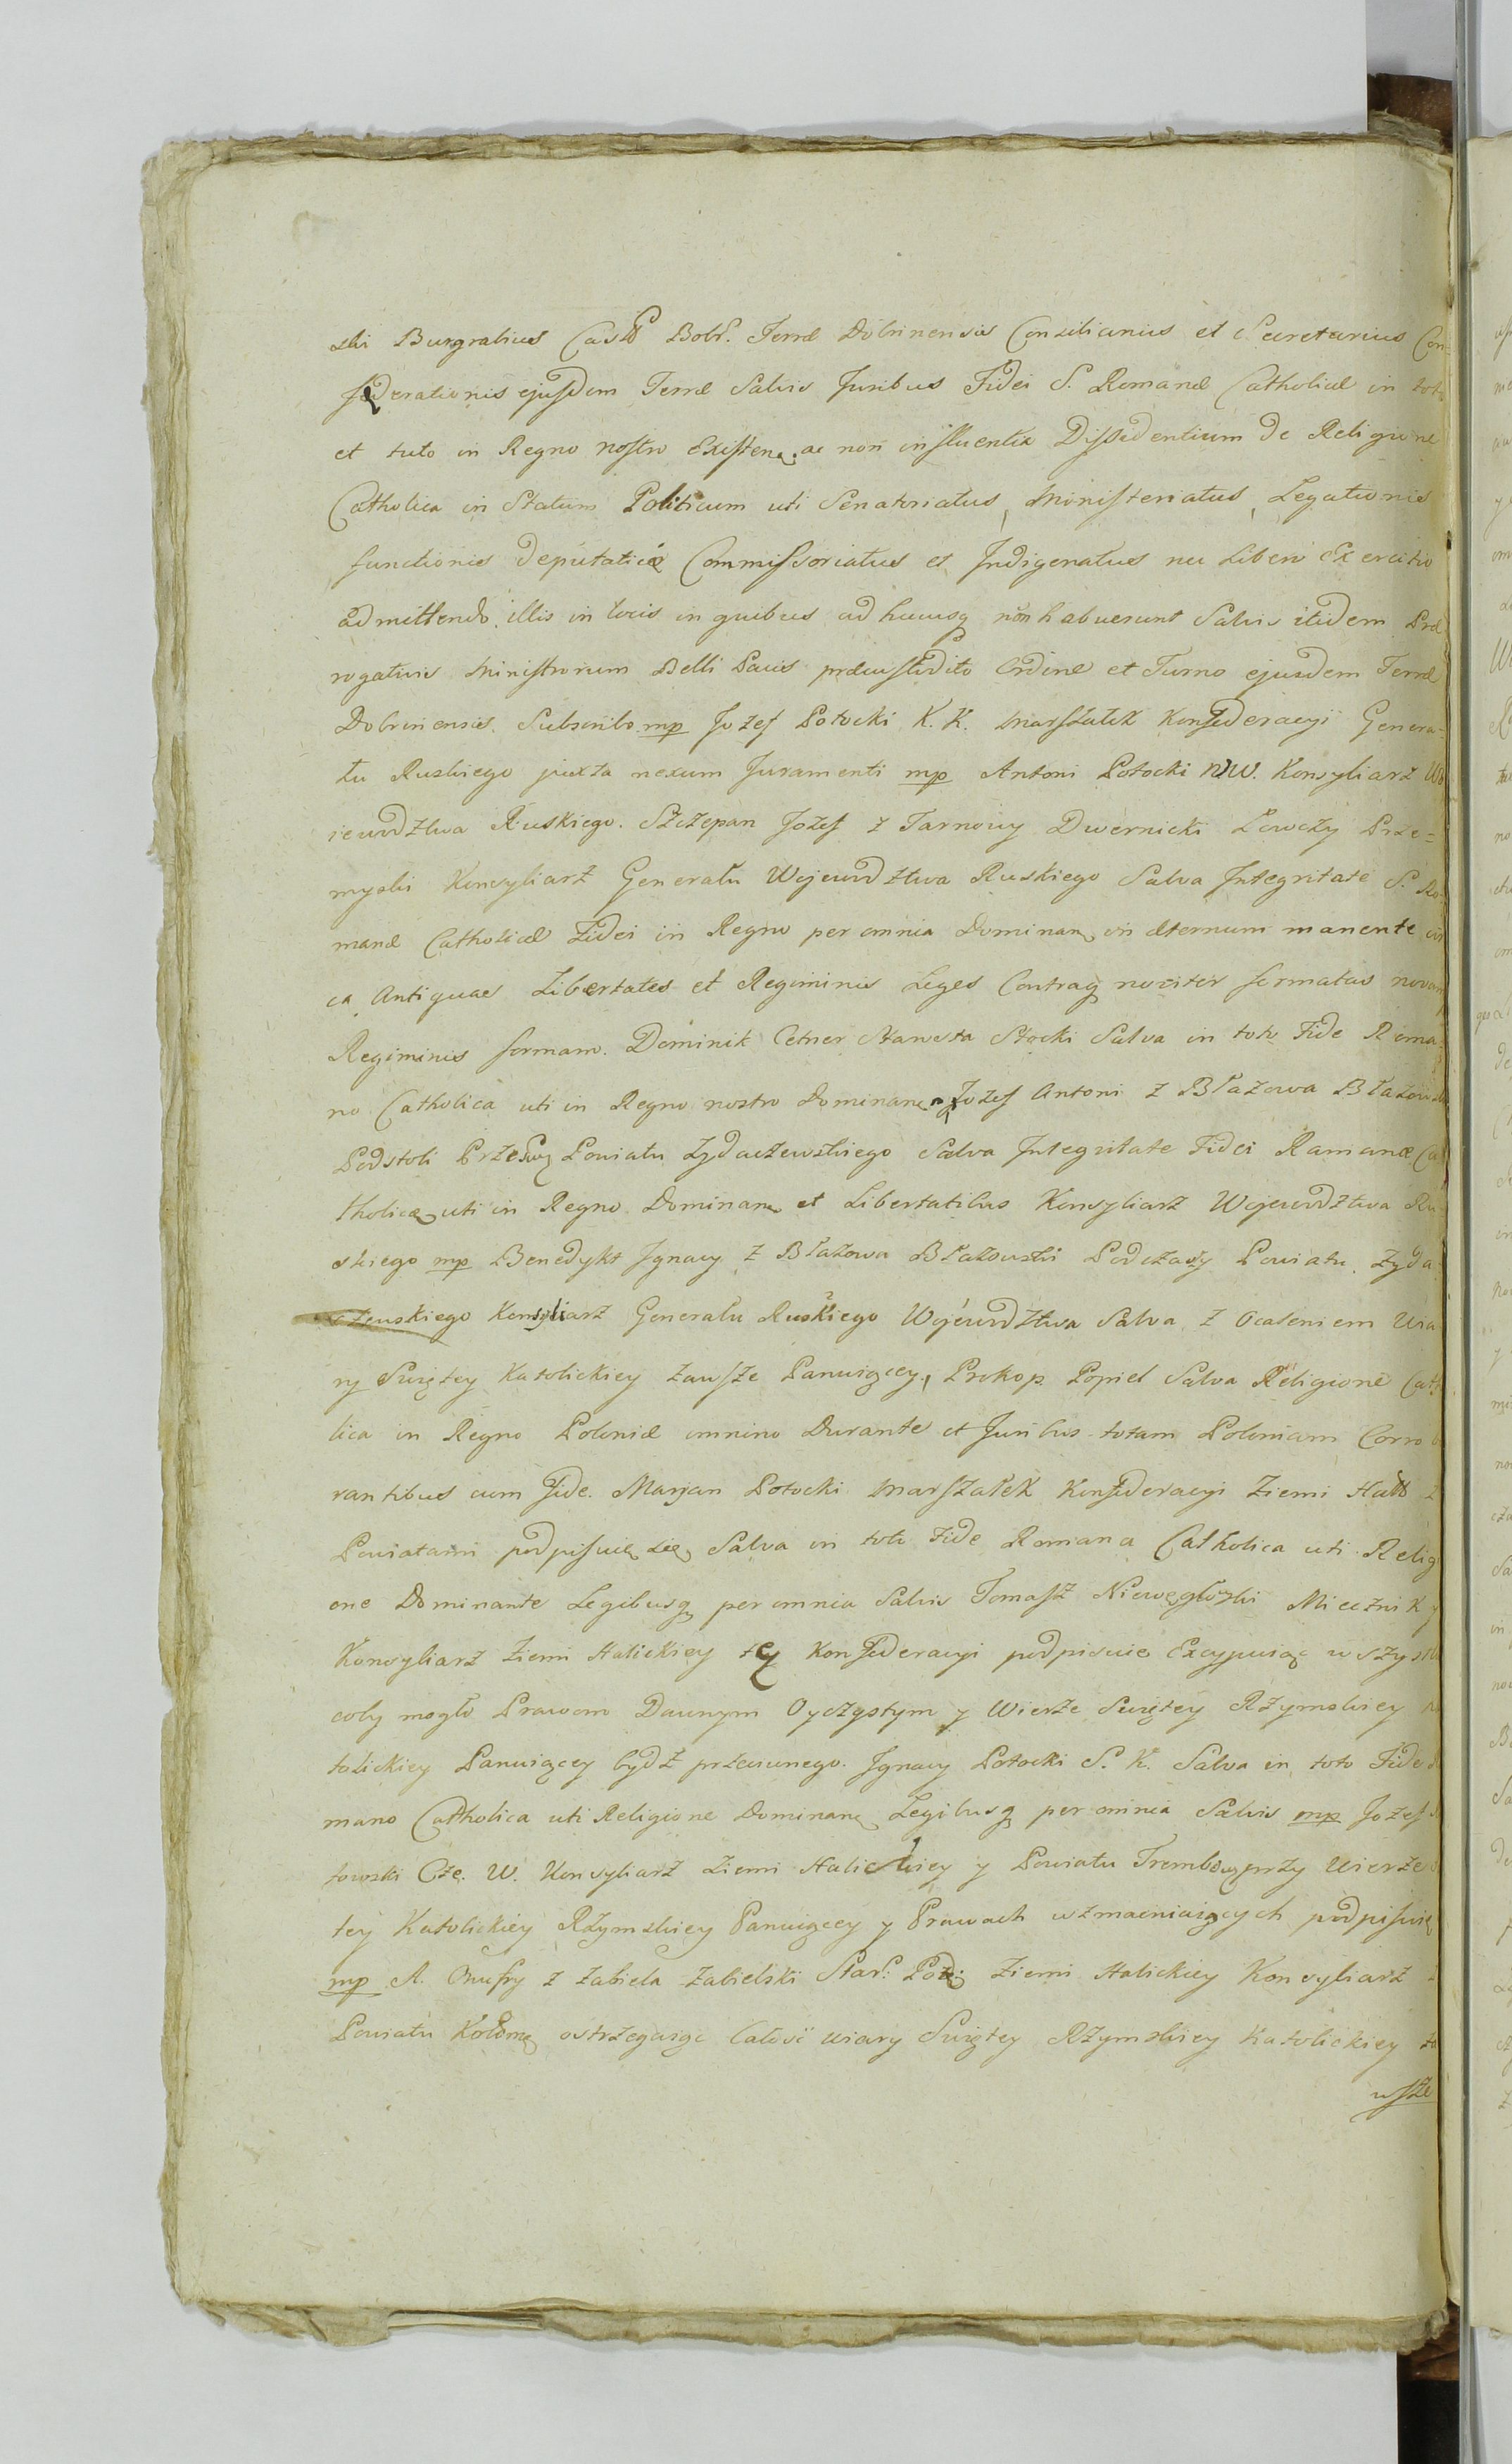 ski Burgrabius Bobr. Terræ Dobrinensis Consiliarius et Secretarius Con=
fæderationis ejusdem Terræ Salvis Juribus Fidei S. Romanæ Catholicæ in toto
et tuto in Regno nostro Existen. ac non influentia Dissidentium de Religione
Catholica in Statum Politicum uti Senatoriatus, Ministeriatus, Legationis
functionis deputaticæ Commissoriatus et Indigenatus nec Libero Exercitio
admittendo illis in locis in quibus ad hucusq non habuerunt Salvis itidem Præ
rogativis Ministrorum Belli Pacis præcustodito Ordine et Turno ejusdem Terræ
Dobrinensis. Subscribo mp Jozef Potocki K. K. Marszałek Konfederacyi Genera=
łu Ruskiego juxta nexum Juramenti mp Antoni Potocki Konsyliarz Wo
iewodztwa Ruskiego. Szczepan Jozef z Tarnowy Dwernicki Łowczy Prze=
myski Konsyliarz Generału Wojewodztwa Ruskiego Salva Integritate S. Ro
manæ Catholicæ Fidei in Regno per omnia Dominan in æternum manente
ca Antiquas Libertates et Regiminis Leges Contraq noviter formatas novam
Regiminis formam. Dominik Cetner Starosta Stocki Salva in toto Fide Roma
no Catholica uti in Regno nostro Dominan Jozef Antoni z Błazowa Błazowski
Podstoli Powiatu Zydaczewskiego Salva Integritate Fidei Ramanæ Ca
tholicæ uti in Regno Dominan et Libertatibus Konsyliarz Wojewodztwa Ru
skiego mp Benedykt Ignacy z Błazowa Błazowski Podczaszy Powiatu Zyda
czewskiego Konsyliarz Generału Ruskiego Wojewodztwa Salva z Ocaleniem Wia
ry Swiętey Katolickiey zawsze Panuiącey, Prokop Popiel Salva Religione Catho
lica in Regno Poloniæ omnino Durante et Juribus totam Poloniam Corrobo
rantibus cum fide. Maryan Potocki Marszałek Konfederacyi Ziemi z
Powiatami podpisuię się Salva in toto Fide Romana Catholica uti Religi
one Dominante Legibusq per omnia Salvis Tomasz Niewęgłowski Miecznik y
Konsyliarz Ziemi Halickiey tey Konfederacyi podpisuie Excypuiąc wszystko
coby mogło Prawom Dawnym Oyczystym y Wierze Swiętey Rzymskiey Ka
tolickiey Panuiącey bydz przeciwnego. Ignacy Potocki S. K. Salva in toto Fide
mano Catholica uti Religione Dominan Legibusq per omnia Salvis mp Jozef
towski Cze. W. Konsyliarz Ziemi Halickiey y Powiatu Trembow przy Wierze
tey Katolickiey Rzymskiey Panuiącey y Prawach wzmacniaiących podpisuię
mp A. Onufry z Zabiela Zabielski Star: Ziemi Halickiey Konsyliarz
Powiatu Kołom ostrzegaiąc Całość wiary Swiętey Rzymskiey Katolickiey za
wsze